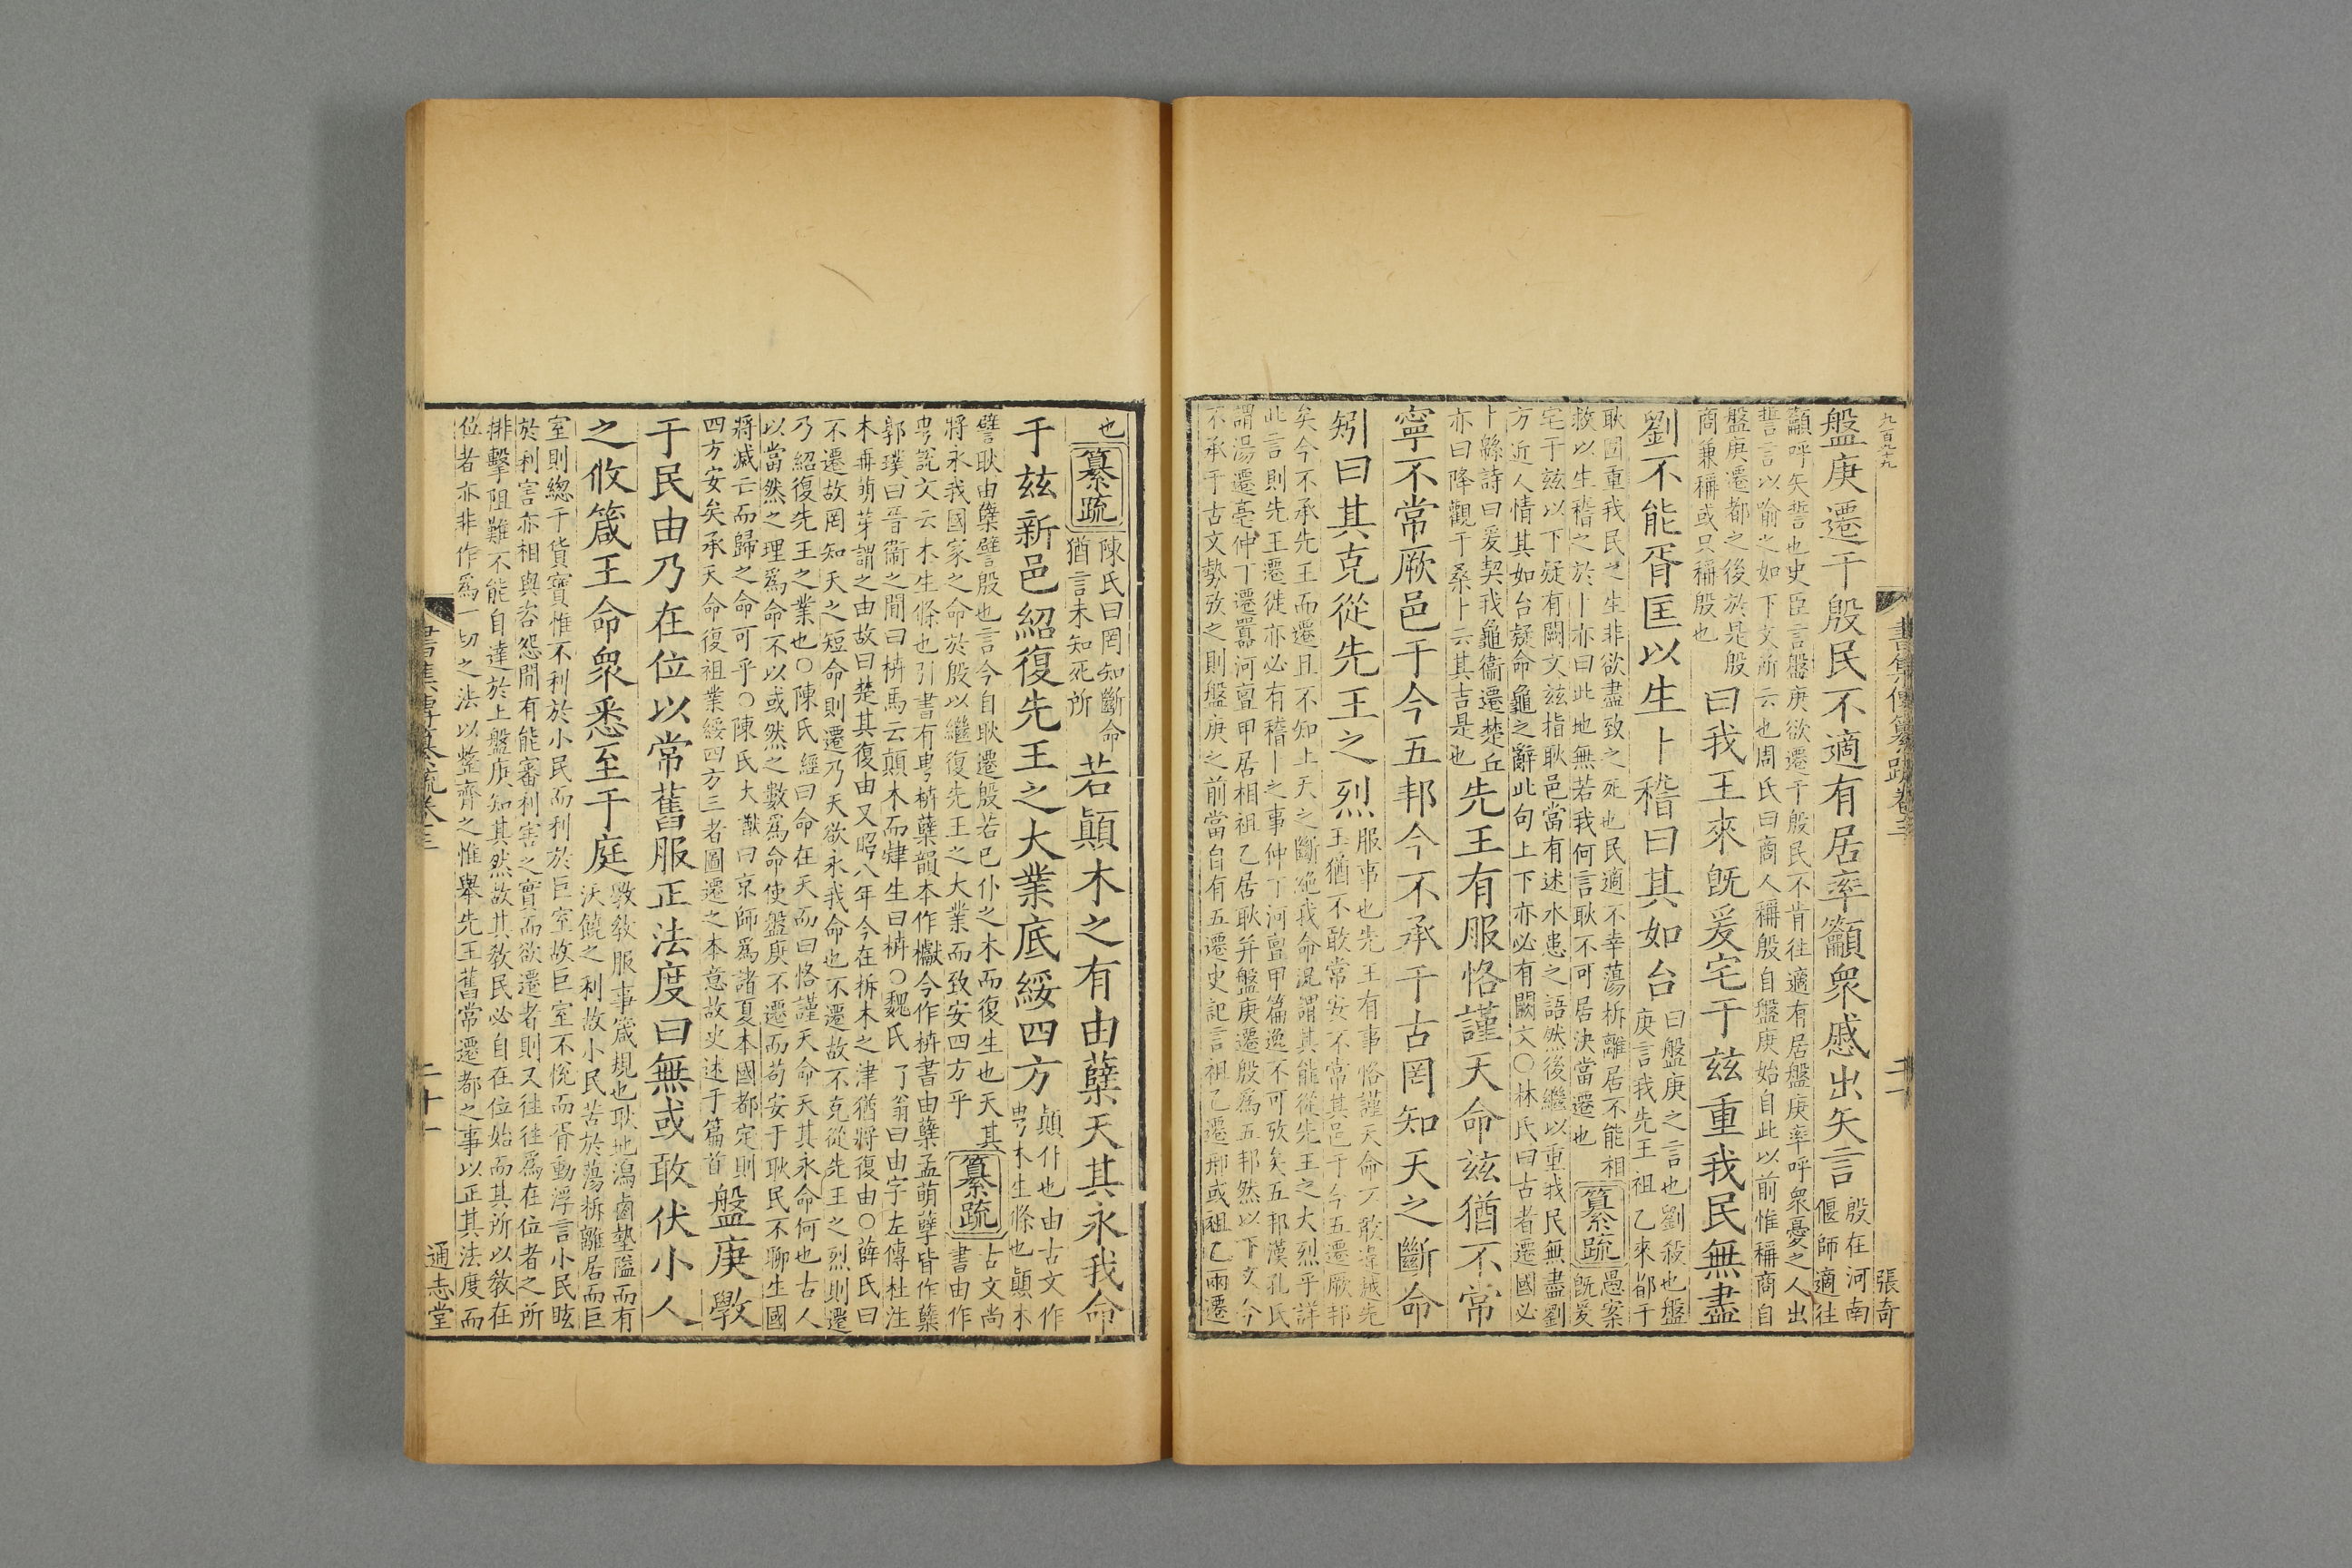 九百九十九
書集傳纂疏卷三
二十
張奇
盤庚遷于殷民不適有居率籲衆慼出矢言殷在河南
偃師適往
籲呼矢誓也史臣言盤庚欲遷于殷民不肯往適有居盤庚率呼衆憂之人出
誓言以喻之如下文所云也周氏曰商人稱殷自盤庚始自此以前惟稱商自
盤庚遷都之後於是殷
商兼稱或只稱殷也
曰我王來既爰宅于茲重我民無盡
劉不能胥匡以生卜稽曰其如台曰盤庚之言也劉殺也盤
庚言我先王祖乙來都于
耿固重我民之生非欲盡致之死也民適不幸蕩析離居不能相
救以生稽之於卜亦曰此地無若我何言耿不可居決當遷也
纂疏
愚案
既爰
宅于茲以下疑有闕文茲指耿邑當有述水患之語然後繼以重我民無盡劉
方近人情其如台疑命龜之辭此句上下亦必有闕文○林氏曰古者遷國必
卜緜詩曰爰契我龜衞遷楚丘
亦曰降觀于桑卜云其吉是也
先王有服恪謹天命茲猶不常
寧不常厥邑于今五邦今不承于古罔知天之斷命
矧曰其克從先王之烈服事也先王有事恪謹天命不敢違越先
王猶不敢常安不常其邑于今五遷厥邦
矣今不承先王而遷且不知上天之斷絕我命況謂其能從先王之大烈乎詳
此言則先王遷徙亦必有稽卜之事仲丁河亶甲篇逸不可攷矣五邦漢孔氏
謂湯遷亳仲丁遷囂河亶甲居相祖乙居耿并盤庚遷殷爲五邦然以下文今
不承于古文勢攷之則盤庚之前當自有五遷史記言祖乙遷邢或祖乙兩遷
也
纂疏
陳氏曰罔知斷命
猶言未知死所
若顛木之有由蘖天其永我命
于茲新邑紹復先王之大業厎綏四方顛仆也由古文作
甹木生條也顛木
譬耿由蘖譬殷也言今自耿遷殷若已仆之木而復生也天其
將永我國家之命於殷以繼復先王之大業而致安四方乎
纂疏
古文尚
書由作
甹説文云木生條也引書有甹枿蘖韻本作櫱今作枿書由蘖孟萌孽皆作蘖
郭璞曰晉衞之間曰枿馬云顛木而肄生曰枿○魏氏了翁曰由字左傳杜注
木再萌芽謂之由故曰楚其復由又昭八年今在析木之津猶將復由○薛氏曰
不遷故罔知天之短命則遷乃天欲永我命也不遷故不克從先王之烈則遷
乃紹復先王之業也○陳氏經曰命在天而曰恪謹天命天其永命何也古人
以當然之理爲命不以或然之數爲命使盤庚不遷而苟安于耿民不聊生國
將滅亡而歸之命可乎○陳氏大猷曰京師爲諸夏本國都定則
四方安矣承天命復祖業綏四方三者圖遷之本意故史述于篇首
盤庚斅
于民由乃在位以常舊服正法度曰無或敢伏小人
之攸箴王命衆悉至于庭斅敎服事箴規也耿地瀉鹵墊隘而有
沃饒之利故小民苦於蕩析離居而巨
室則總于貨寶惟不利於小民而利於巨室故巨室不悅而胥動浮言小民眩
於利害亦相與咨怨間有能審利害之實而欲遷者則又往往爲在位者之所
排擊阻難不能自達於上盤庚知其然故其敎民必自在位始而其所以敎在
位者亦非作爲一切之法以整齊之惟舉先王舊常遷都之事以正其法度而
書集傳纂疏卷三
二十一
通志堂